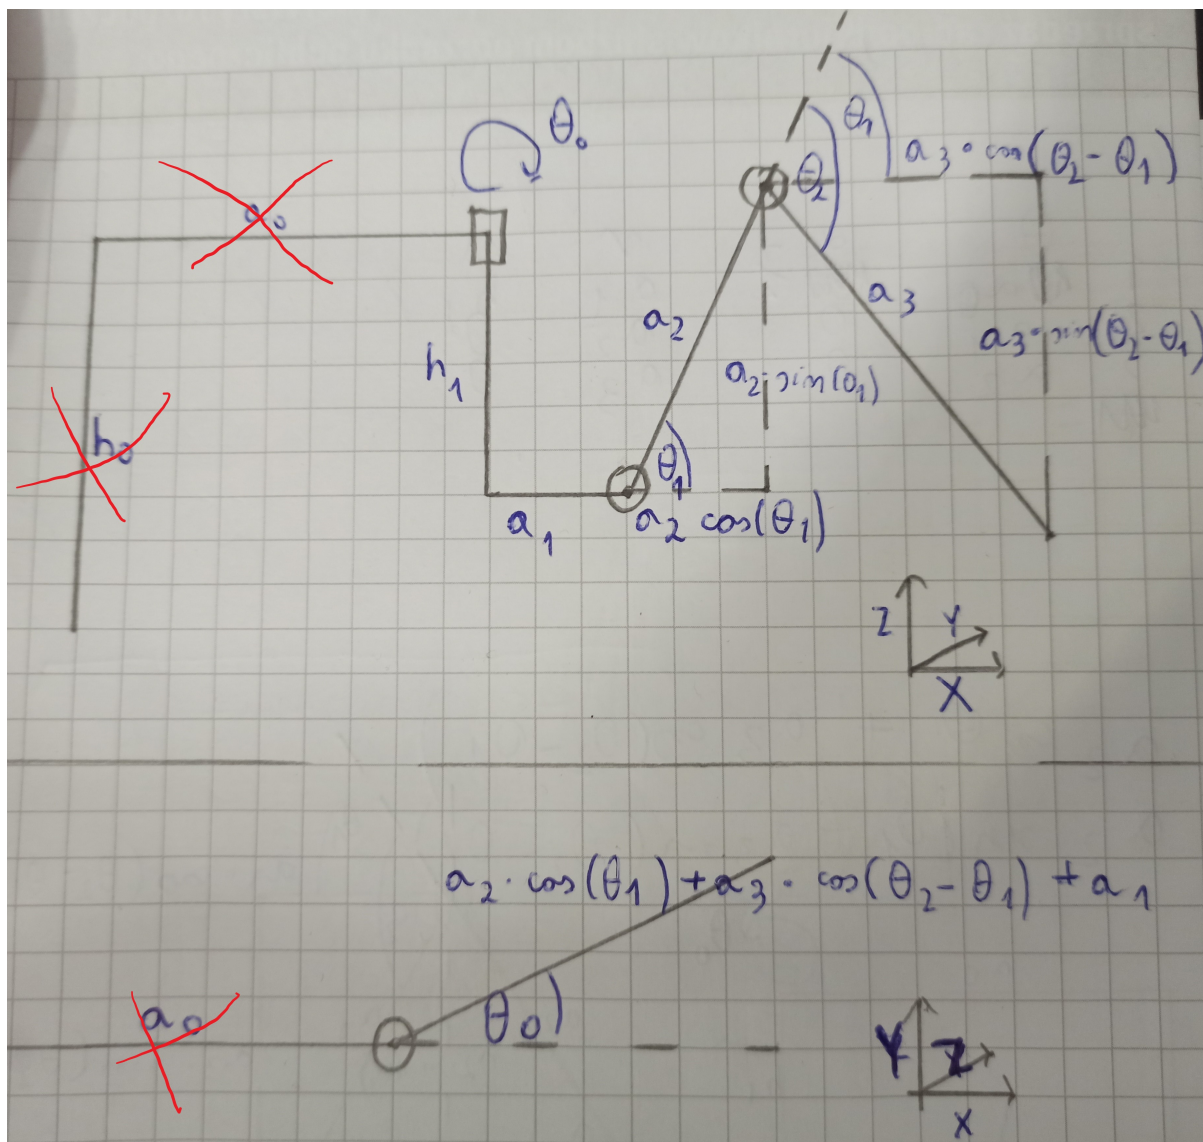 θ₀
θ₁
a₃ · cos(θ₂ - θ₁)
θ₂
a₀
a₃
a₂
a₃ · sin(θ₂ - θ₁)
h₁
a₂ · sin(θ₁)
h₀
θ₁
a₁
a₂ cos(θ₁)
Z
Y
X
a₂ · cos(θ₁) + a₃ · cos(θ₂ - θ₁) + a₁
a₀
θ₀
Y
Z
X